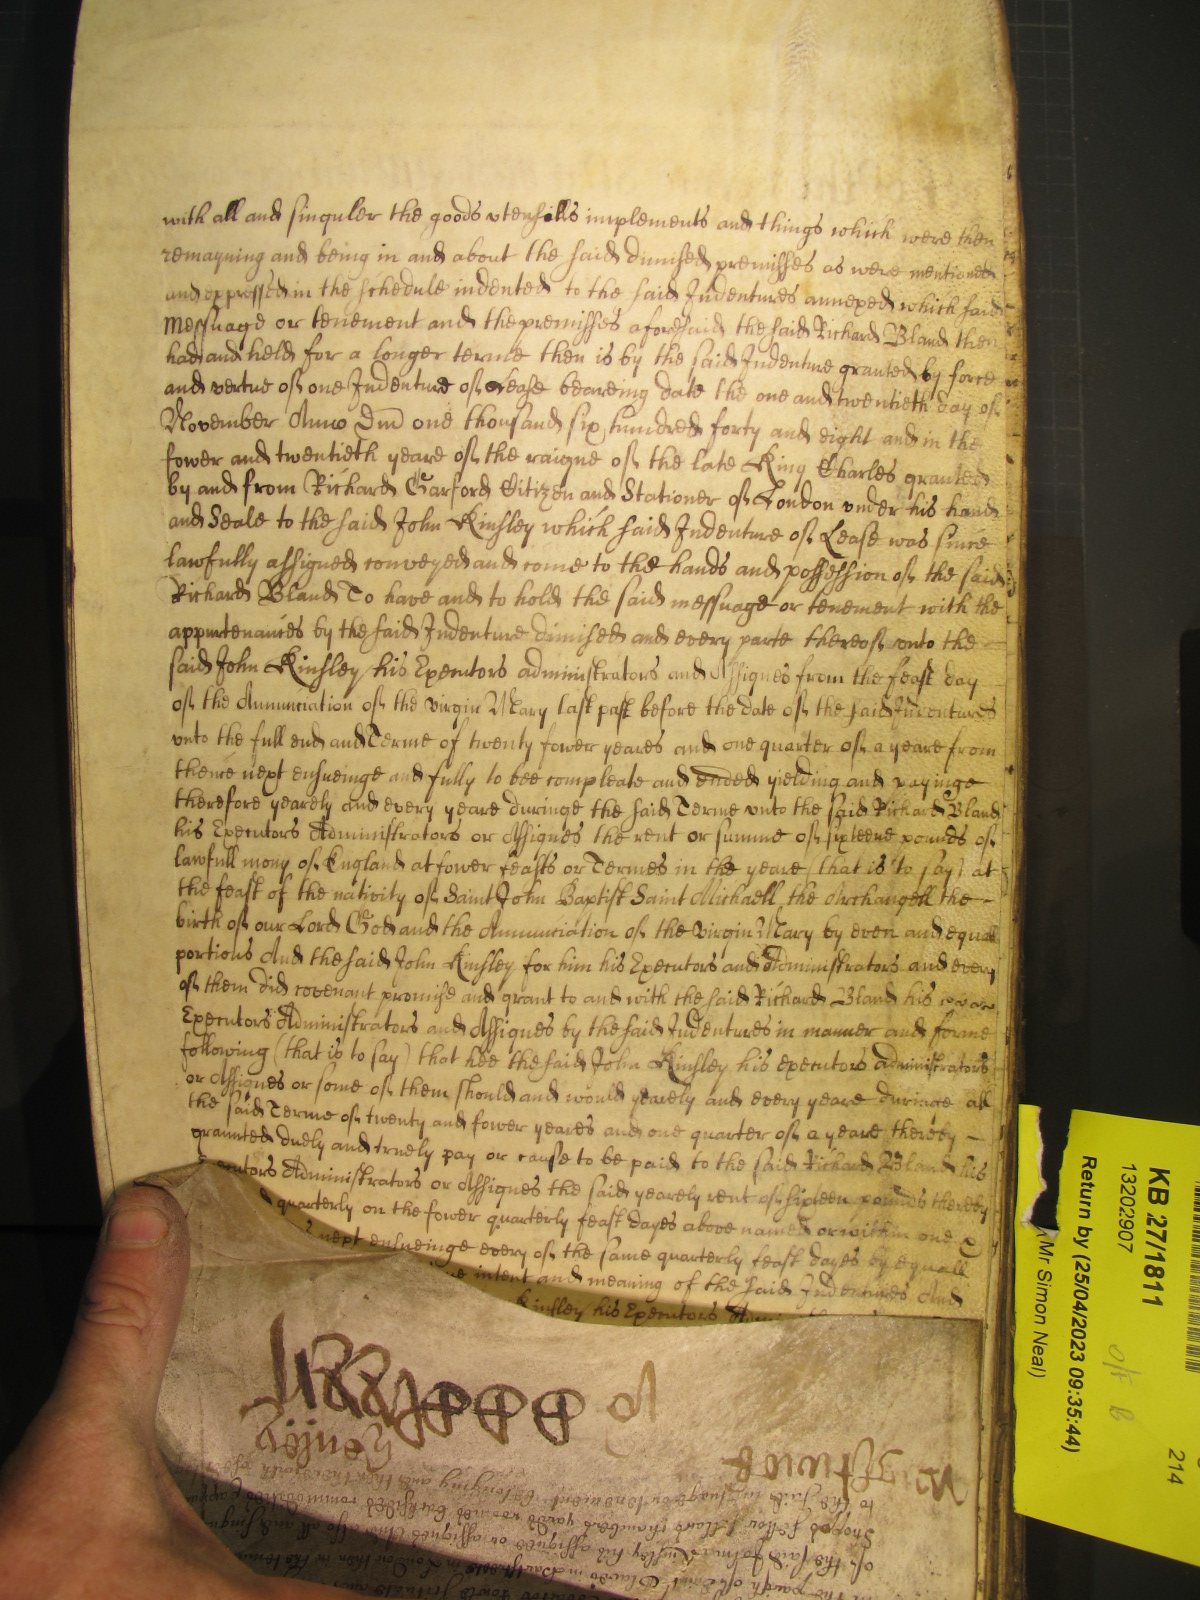 with all and singuler the goods vtensills implements and things which were then
remayning and being in and about the said dimised premisses as were mentioned
and expressed in the schedule indented to the said Indentures annexed which said
Messuage or tenement and the premisses aforesaid the said Richard Bland then
had and held for a longer terme then is by the said Indenture granted by force
and vertue of one Indenture of Lease beareing date the one and twentieth day of
November Anno Dni one thousand six hundred forty and eight and in the
fower and twentieth yeare of the raigne of the late King Charles granted
by and from Richard Garford Citizen and Stationer of London vnder his hand
and Seale to the said John Kinsley which said Indenture of Lease was since
lawfully assigned conveyed and come to the hands and possession of the said
Richard Bland To have and to hold the said messuage or tenement with the
appurtenances by the said Indenture dimised and every parte thereof vnto the
said John Kinsley his Executors administrators and Assignes from the feast day
of the Annunciation of the virgin Mary last past before the date of the said Indentures
vnto the full end and Terme of twenty fower yeares and one quarter of a yeare from
thence next ensueinge and fully to bee compleate and ended yielding and payinge
therefore yearely and every yeare duringe the said Terme vnto the said Richard Bland
his Executors Administrators or Assignes the rent or summe of sixteene pounds of
lawfull mony of England at fower feasts or Termes in the yeare (that is to say) at
the feast of the nativity of Saint John Baptist Saint Michaell the Archangell the
birth of our Lord God and the Annunciation of the virgin Mary by even and equall
portions And the said John Kinsley for him his Executors and Administrators and every
of them did covenant promise and grant to and with the said Richard Bland his
Executors Administrators and Assignes by the said Indentures in manner and forme
following (that is to say) that hee the said John Kinsley his executors administrators
or Assignes or some of them should and would yearely and every yeare duringe all
the said Terme of twenty and fower yeares and one quarter of a yeare thereby
graunted duely and truely pay or cause to be paid to the said Richard Bland his
Administrators or Assignes the said yearely rent of sixteen pounds thereby
quarterly on the fower quarterly feast dayes above named or within one
next ensueinge every of the same quarterly feast dayes by equall
intent and meaning of the said Indentures And
Kinsley his Executors
Henley
to the said messuage or tenement belonging and
Shopps Cellors Sollars chambers yards roomes easments commodities
of the said John Kinsley his assignee or assignes And also all and singuler
the parish of Saint
KB 27/1811
13202907
Return by (25/04/2023 09:35:44)
Mr Simon Neal)
214